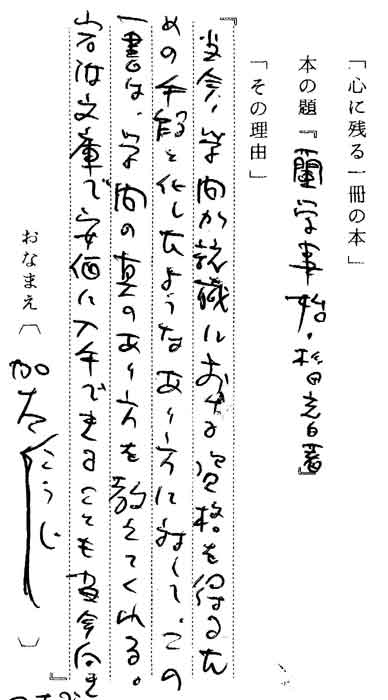 「心に残る一冊の本」
本の題『蘭学事始・杉田玄白著』
「その理由」
『当今、学問が就職における資格を得るた
めの手段と化したようなあり方に対して、この
一書は、学問の真のあり方を教えてくれる。
岩波文庫で安価に入手できることも当今向き』
おなまえ〔加太こうじ〕